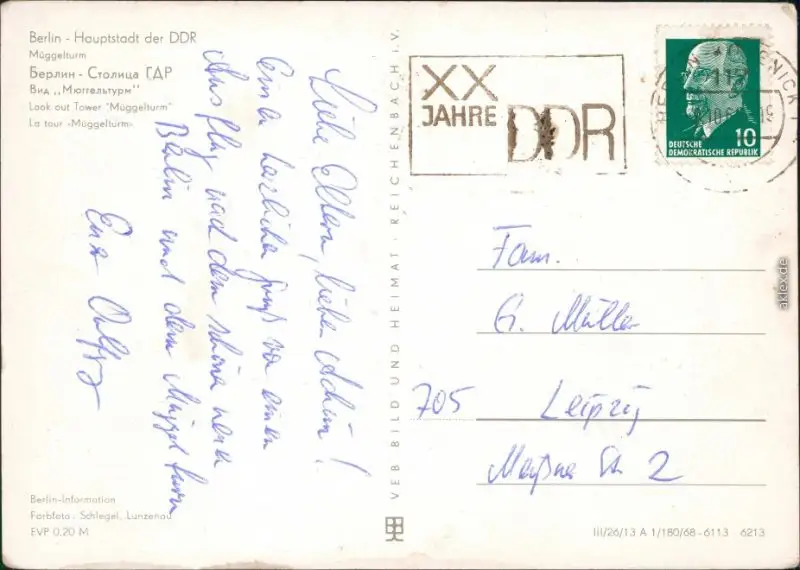 Berlin - Hauptstadt der DDR
Müggelturm
Берлин - Столица ГДР
Вид „Мюггельтурм“
Look out Tower "Müggelturm"
La tour «Müggelturm»
Liebe Eltern, lieber Achim!
herzlichen Gruß von einem
Ausflug nach dem schönen neuen
Berlin und dem Müggelturm
Euer
Berlin-Information
Farbfoto: Schlegel, Lunzenau
EVP 0,20 M
VEB BILD UND HEIMAT · REICHENBACH i. V.
XX
JAHRE DDR
BERLIN
10
DEUTSCHE
DEMOKRATISCHE REPUBLIK
Fam.
G. Müller
705 Leipzig
Meißner Str. 2
III/26/13 A 1/180/68-6113 6213
aklex.de